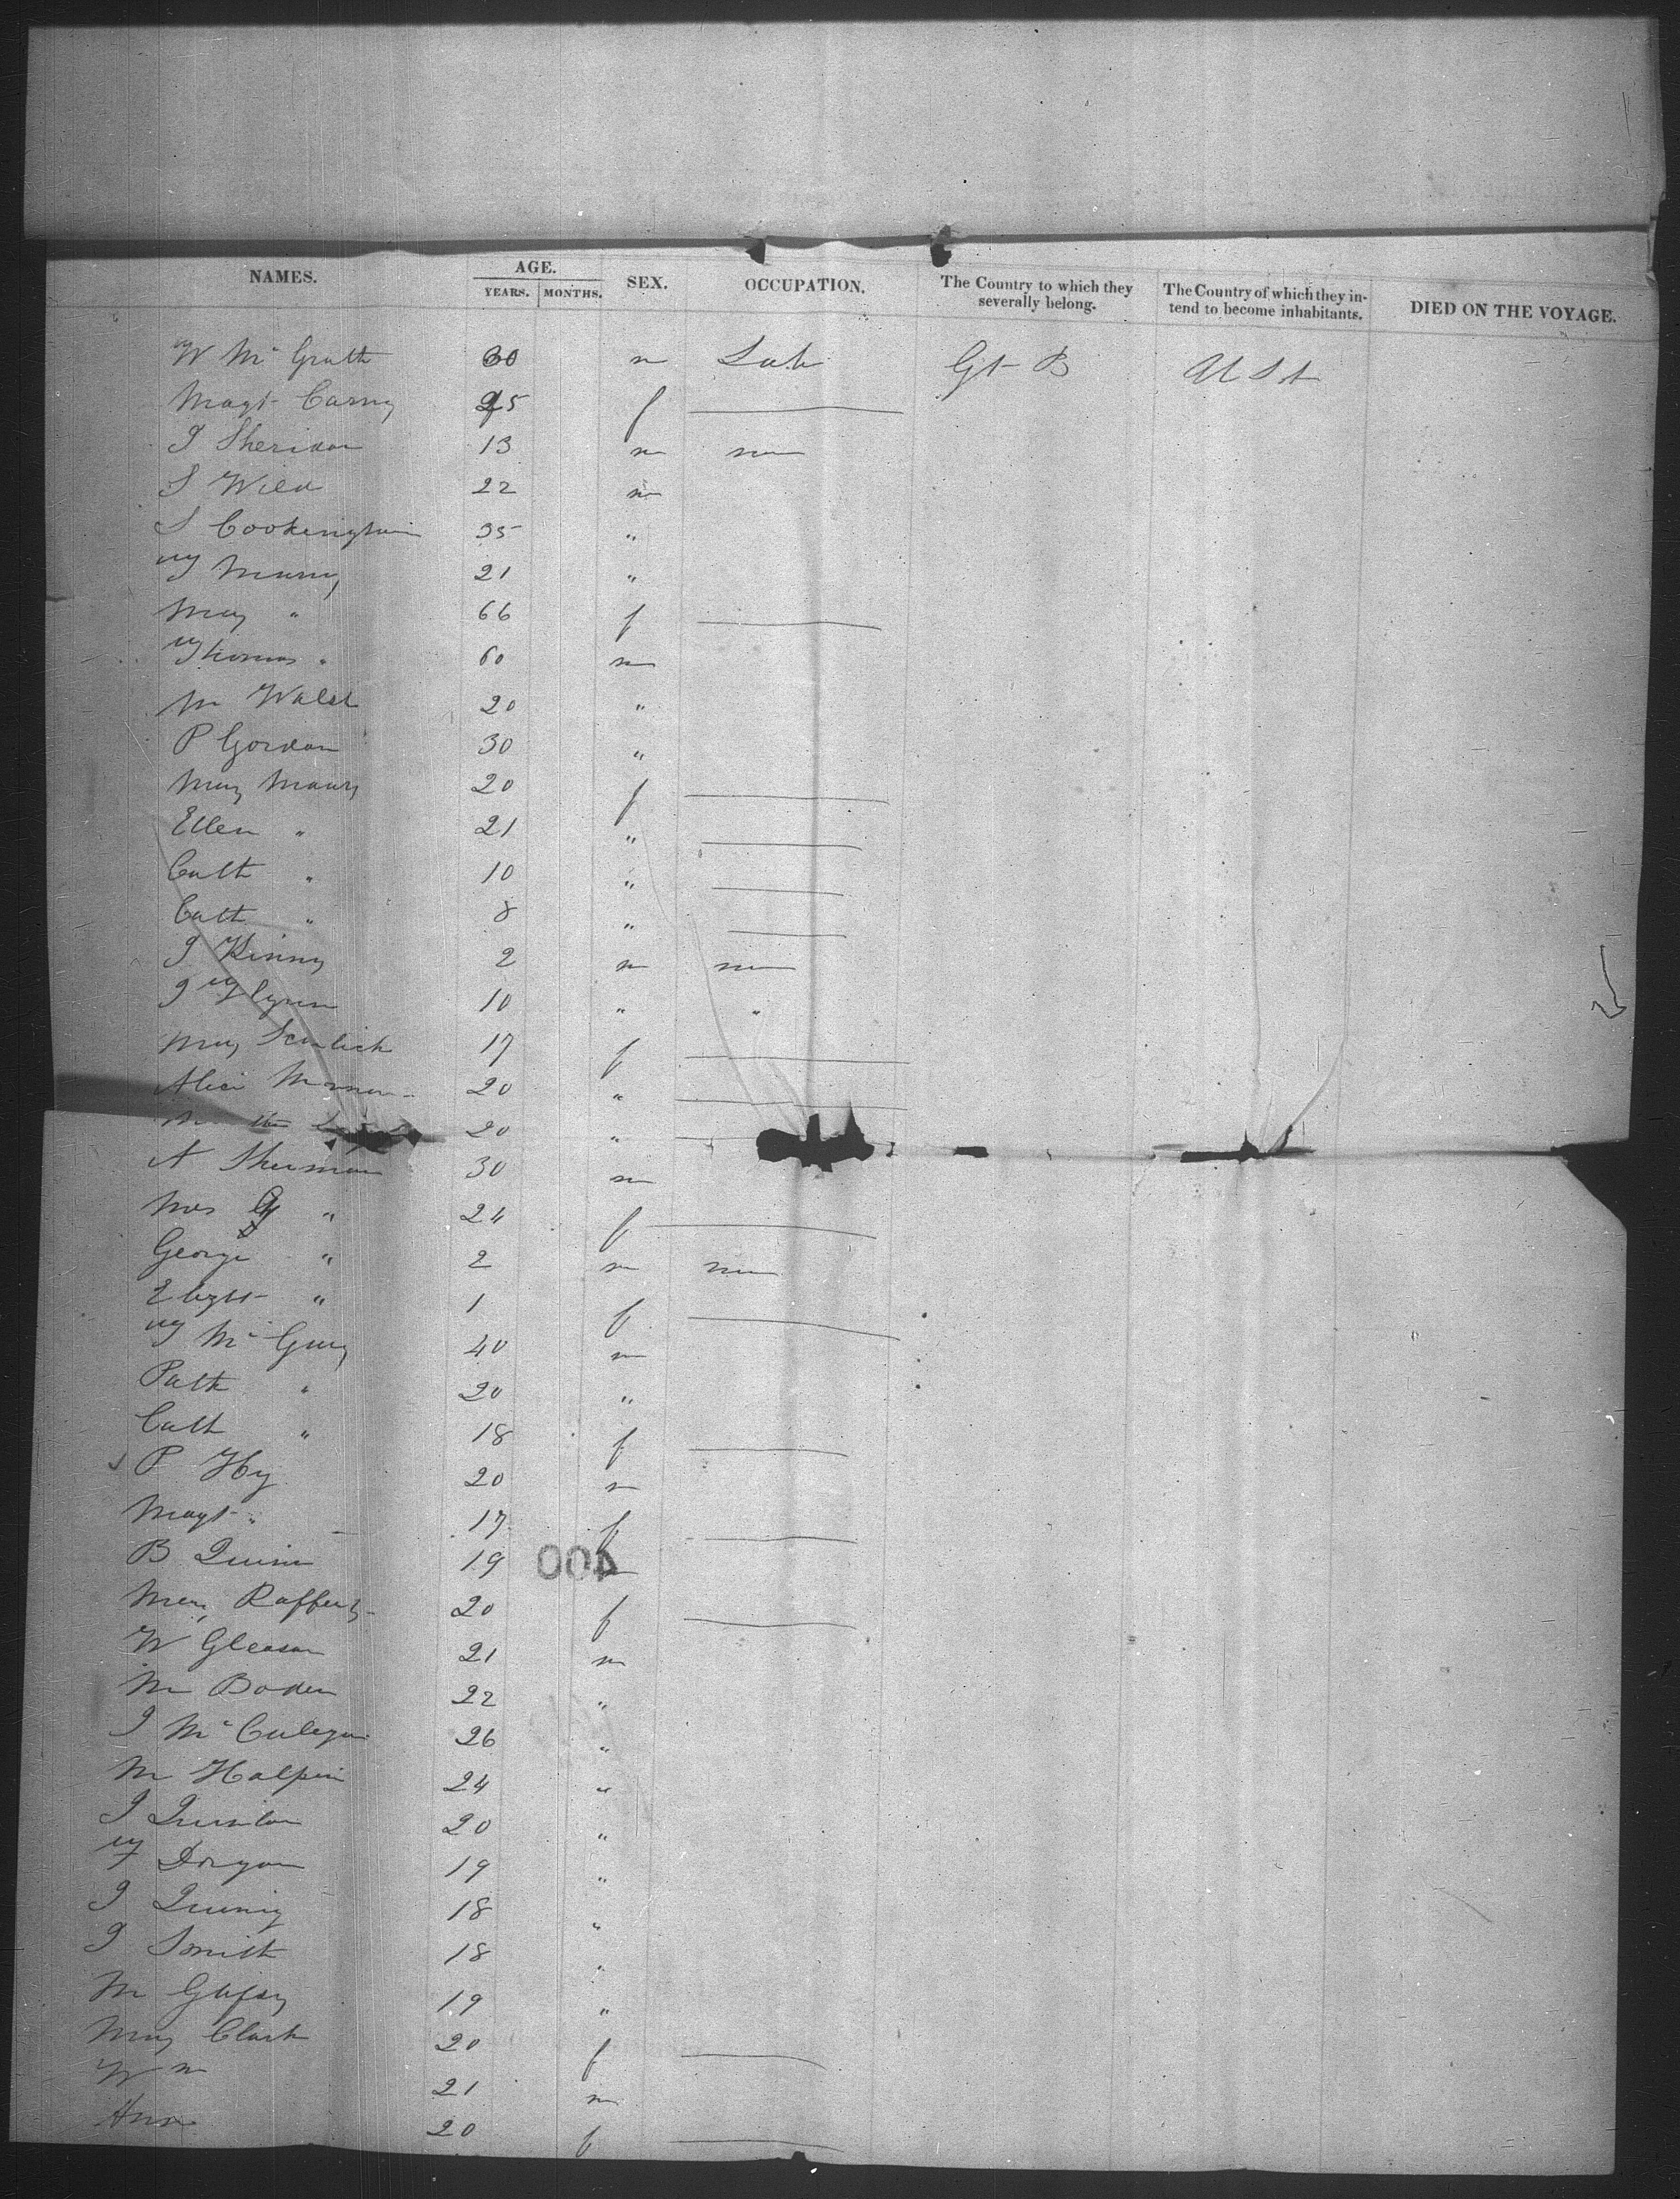 NAMES. AGE. YEARS. MONTHS. SEX. OCCUPATION. The Country to which they severally belong. The Country of which they intend to become inhabitants. DIED ON THE VOYAGE.
W Mc Grath 30 m Lab Gt B U St
Magt Carny 25 f
J Sheridan 13 m
S Wild 22 m
S Cookingham 35 "
T Murry 21 "
May " 66 f
Thomas " 60 m
M Walsh 20 "
P Gordon 30 "
May 20 f
Ellen " 21 "
Cath " 10 "
Cath " 8 "
J Kinny 2 m
J Flynn 10 " "
May 17 f
Alice 20 "
20 "
A Sherman 30 m
Mrs " 24 f
George " 2 m
" 1 f
T Mc 40 m
Patk " 20 "
Cath " 18 f
P Hy 20 m
Magt " 17 f
B Quinn 19
400
May Rafferty 20 f
W Gleason 21 m
M Boden 22 "
J Mc 26 "
M Halpin 24 "
J Quinlan 20 "
19 "
J 18 "
J Smith 18 "
M 19 "
May Clark 20 f
Wm 21 m
Ann 20 f